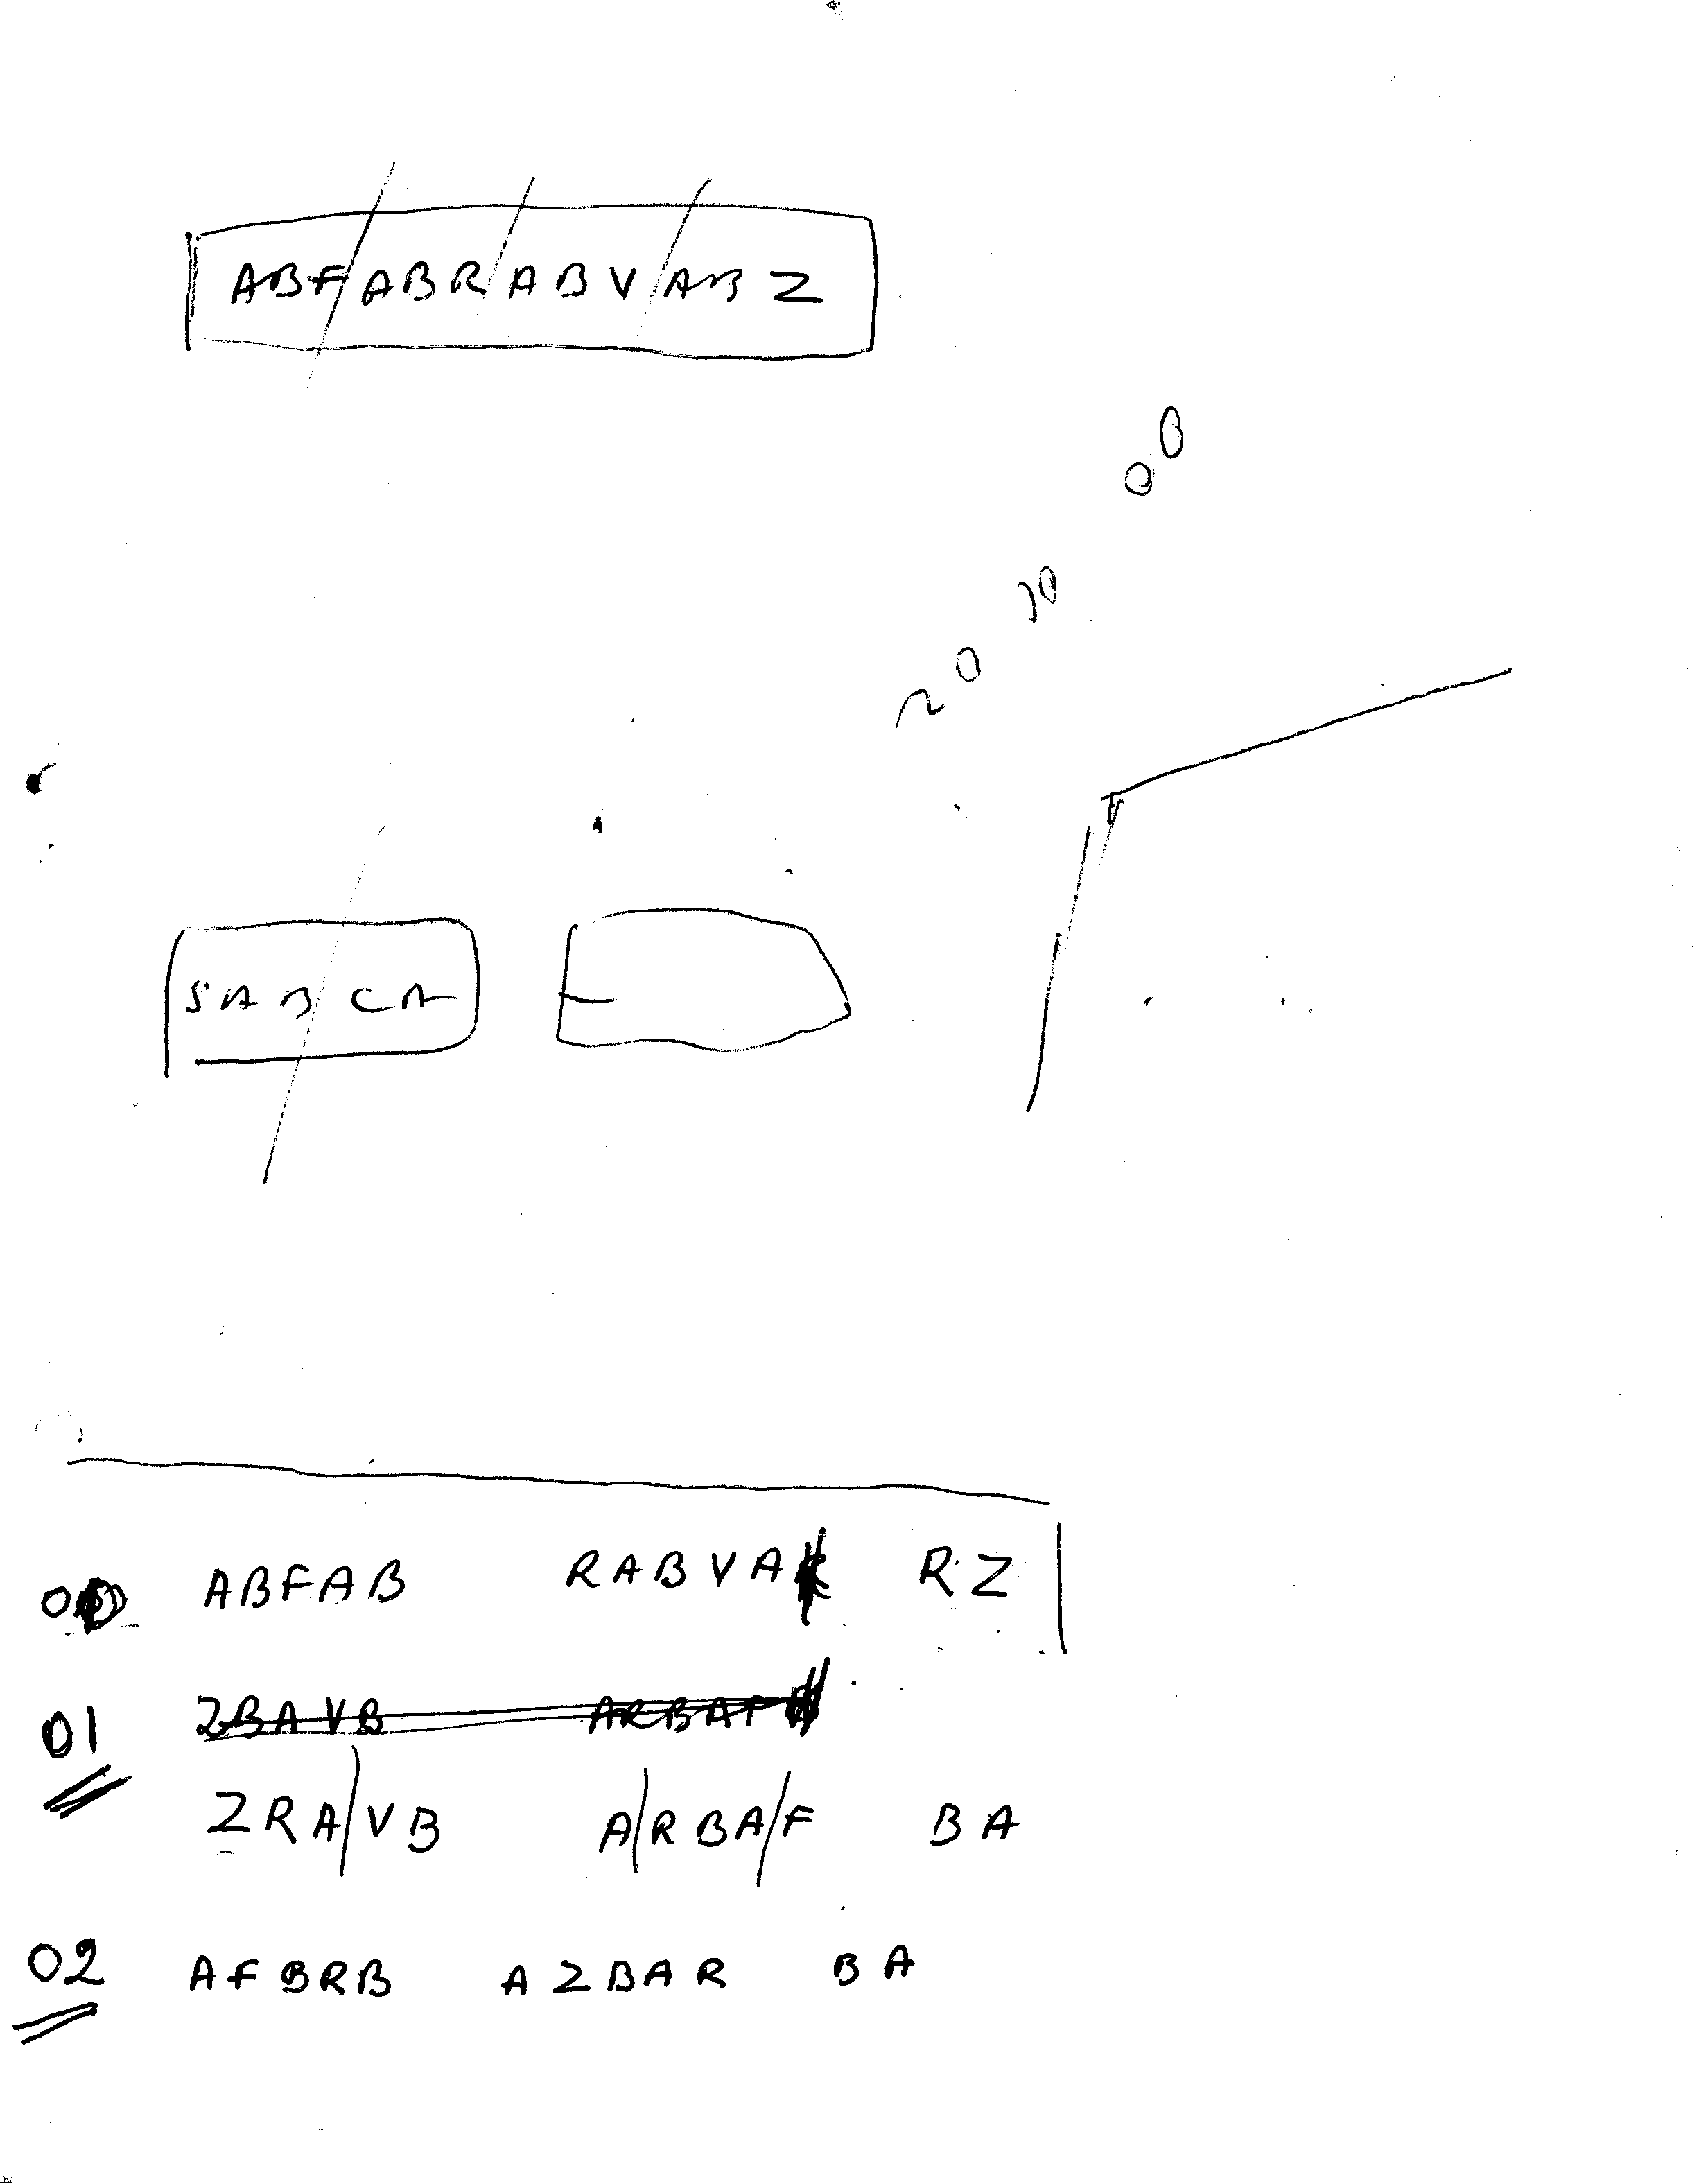 ABF/ABR/ABV/ABZ
00
10
20
SABCA
00 ABFAB RABVA RZ
01 ZBAVB ARBAF
ZRA/VB A/RBA/F BA
02 AFBRB AZBAR BA